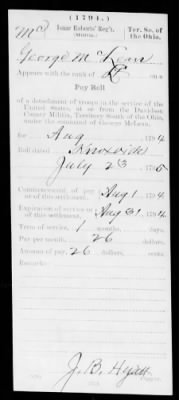 (1794.)
Mc Isaac Roberts' Reg't. Ter. So. of
(Militia.) the Ohio.
George McLean
Appears with the rank of Lt on a
Pay Roll
of a detachment of troops in the service of the
United States, at or from the Davidson
County Militia, Territory South of the Ohio,
under the command of George McLean,
for Aug 1794
Roll dated Knoxville
July 23 1795
Commencement of pay or of this settlement, Aug 1 1794
Expiration of service or of this settlement, Aug 31 1794
Term of service, 1 months, days.
Pay per month, 26 dollars
Amount of pay, 26 dollars, cents.
Remarks:
J. B. Hyatt
Copyist.